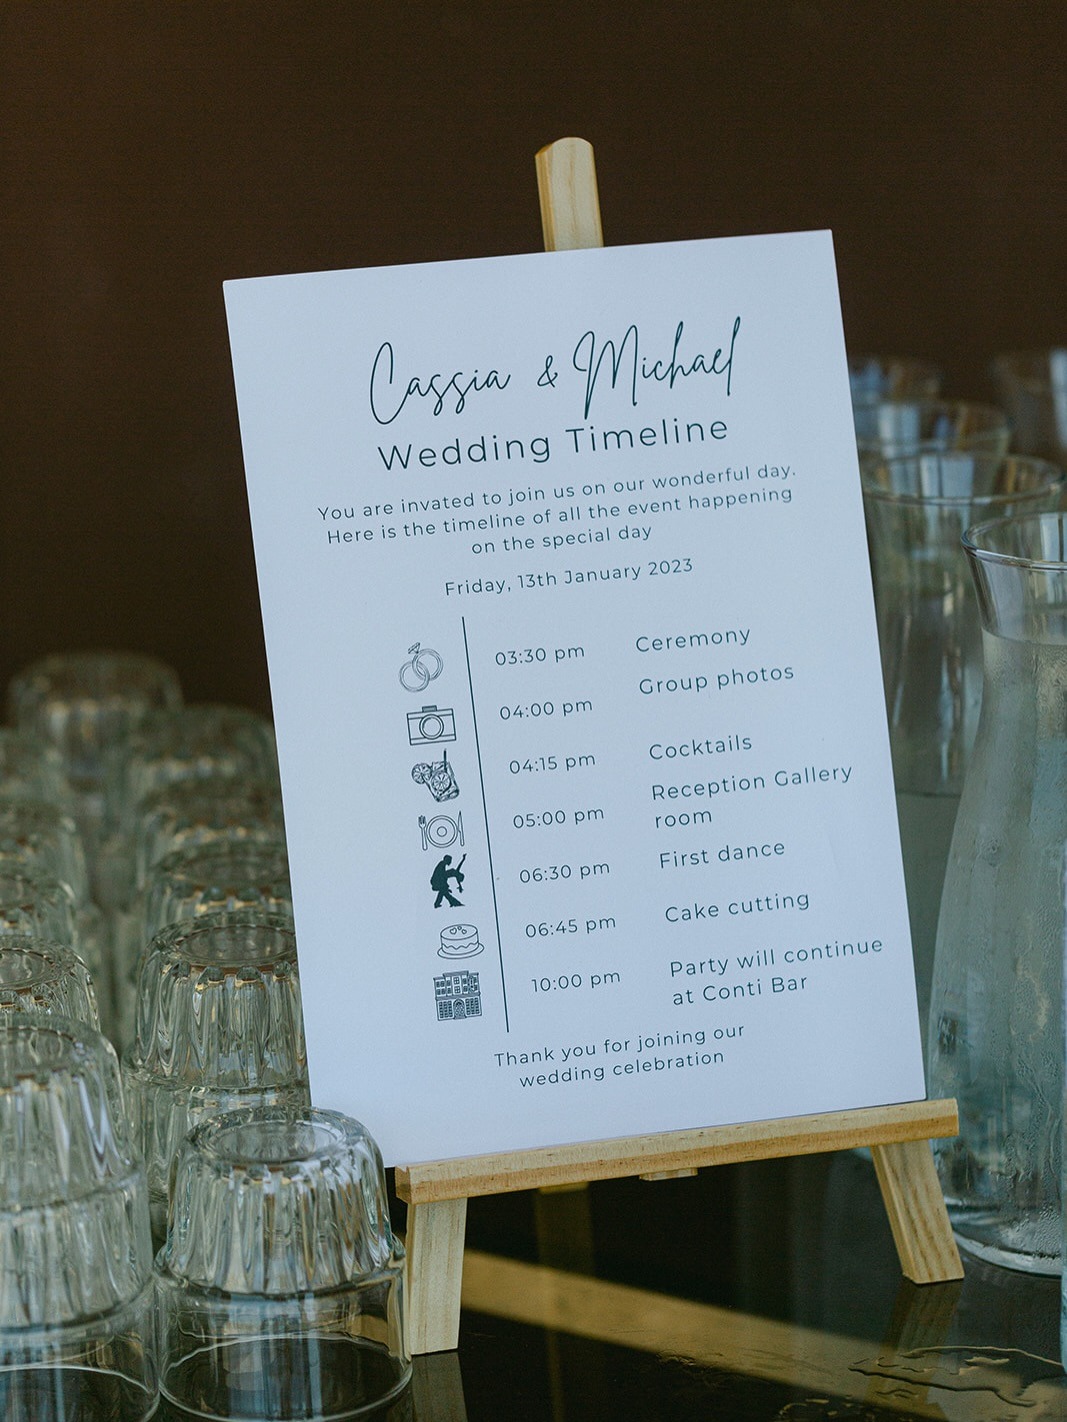 Cassia & Michael
Wedding Timeline
You are invated to join us on our wonderful day.
Here is the timeline of all the event happening
on the special day
Friday, 13th January 2023
03:30 pm Ceremony
04:00 pm Group photos
04:15 pm Cocktails
05:00 pm Reception Gallery
room
06:30 pm First dance
06:45 pm Cake cutting
10:00 pm Party will continue
at Conti Bar
Thank you for joining our
wedding celebration